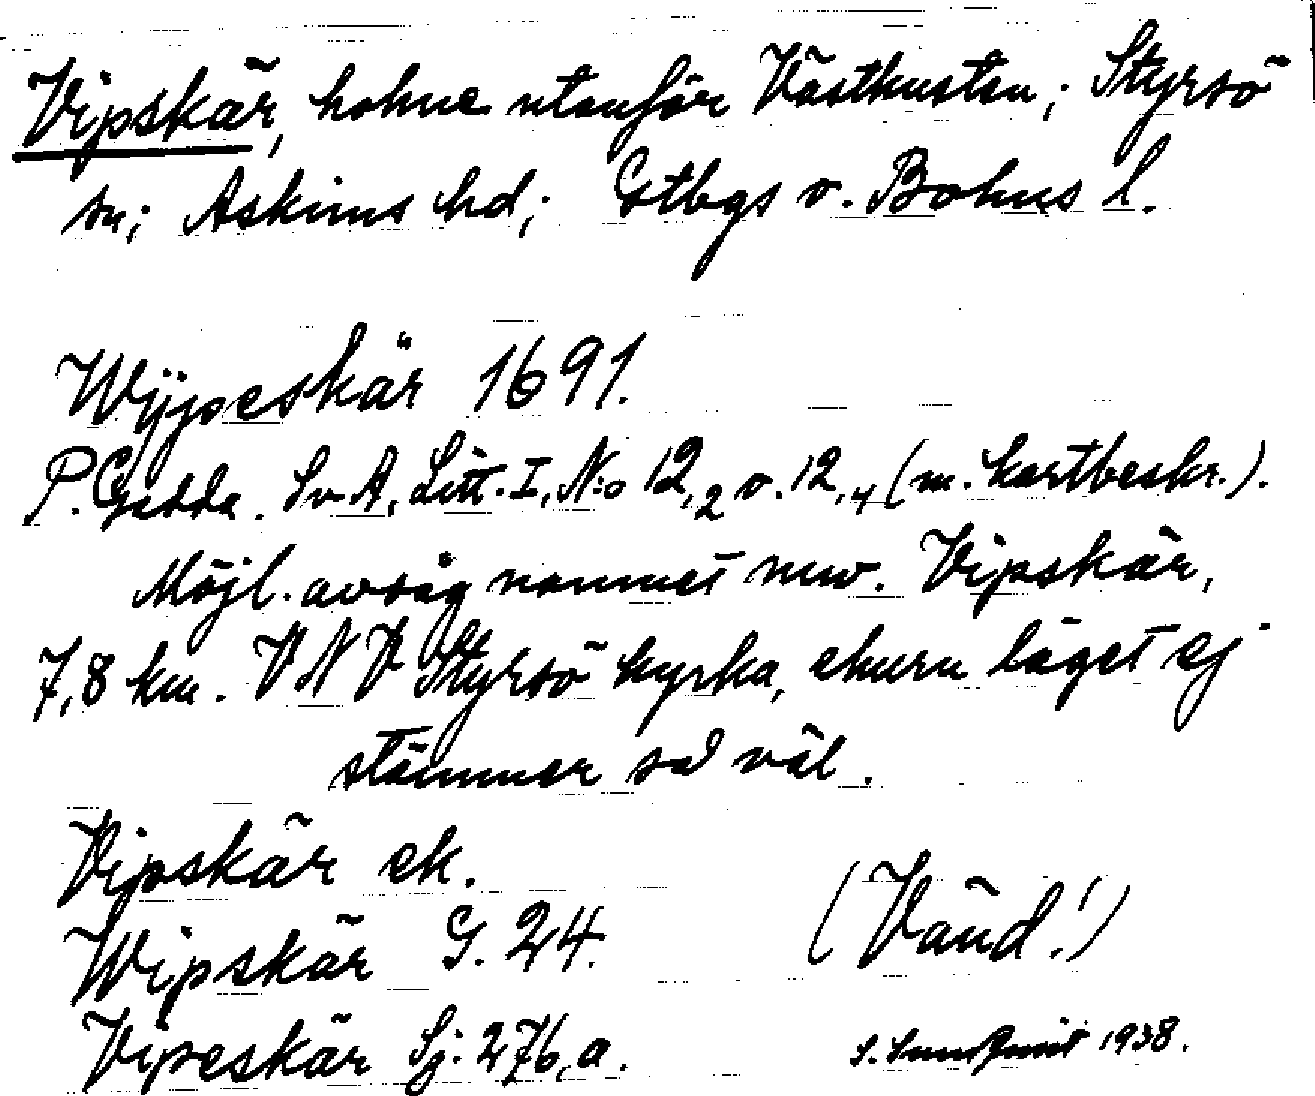 Vipskär, holme utanför Västkusten; Styrsö
sn; Askims hd; Gtbgs o. Bohus l.
Wijpeskär 1691.
P. Gedda. Sv A, Litt. I, N:o 12,2 o. 12,4 (m. kartbeskr.).
Möjl. avsåg namnet nuv. Vipskär,
7,8 km. VNV Styrsö kyrka, ehuru läget ej
stämmer så väl.
Vipskär ek.
Wipskär G. 24.
(Vänd!)
Vipeskär Sj. 276,a.
S. 1938.